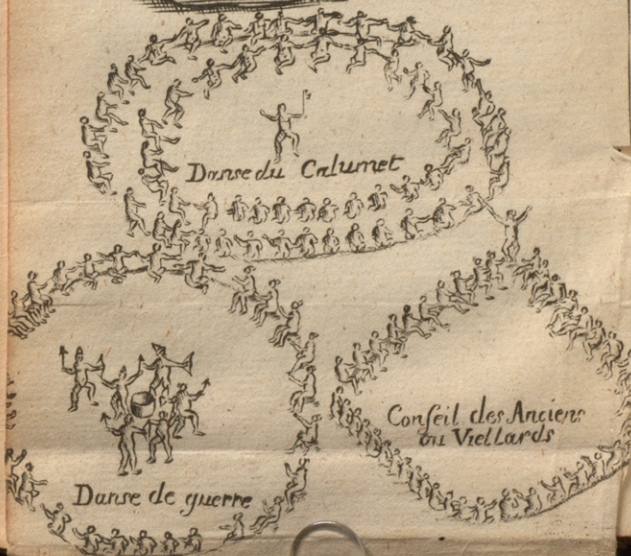 Danse du Calumet
Conseil des Anciens
ou Viellards
Danse de guerre